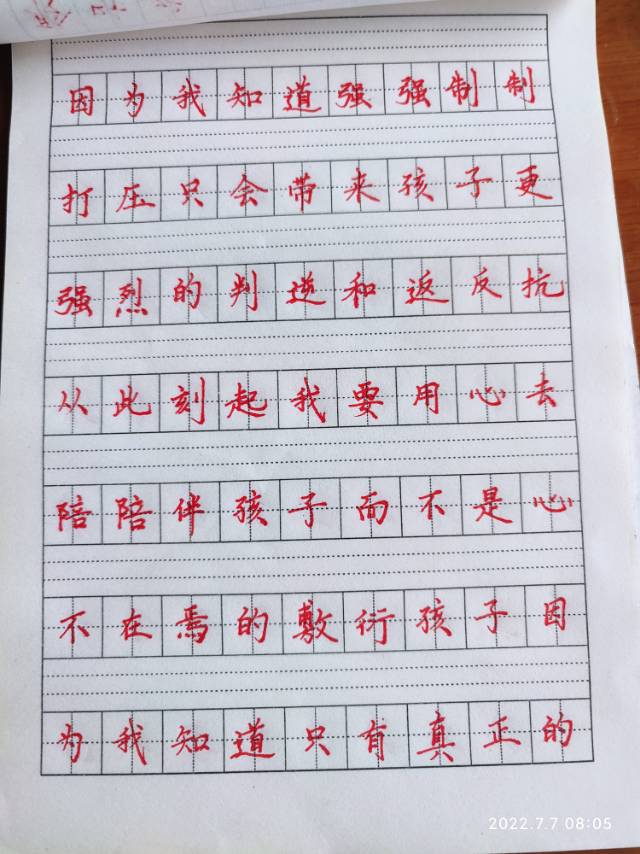 因为我知道强强制制
打压只会带来孩子更
强烈的判逆和返反抗
从此刻起我要用心去
陪陪伴孩子而不是心
不在焉的敷衍孩子因
为我知道只有真正的
2022.7.7 08:05